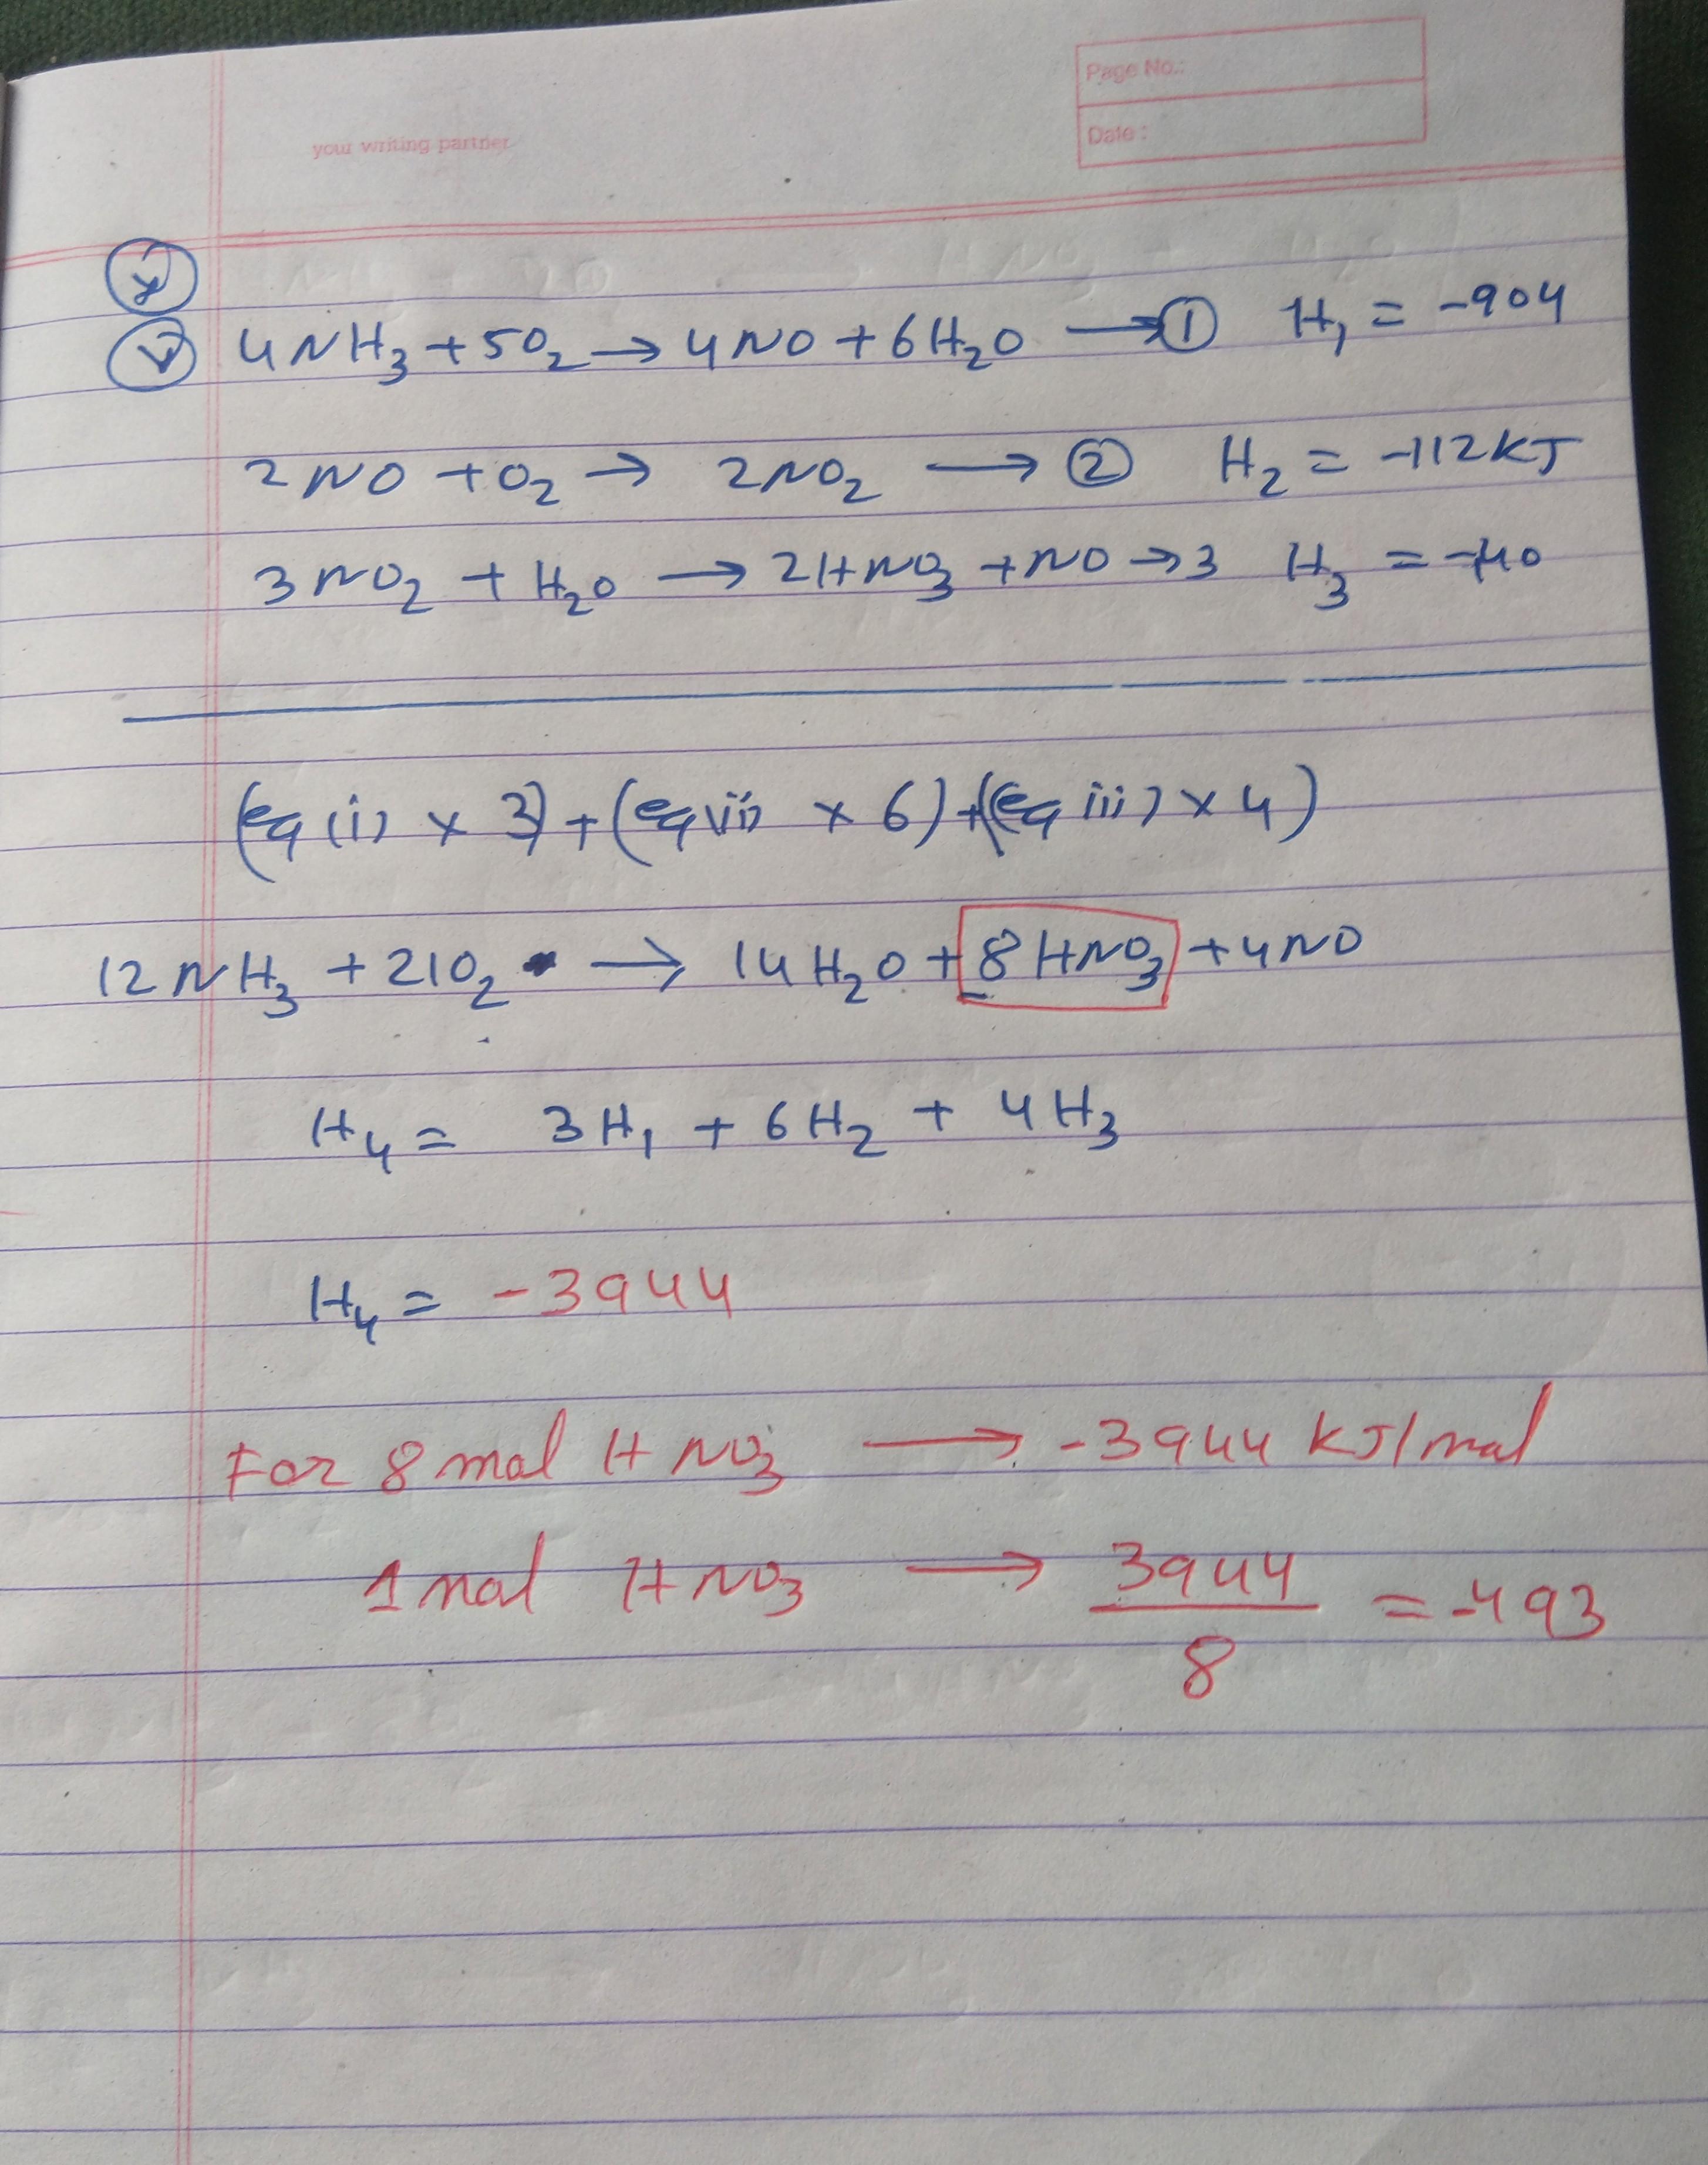 Page No.:
Date :
your writing partner
v 4NH₃ + 5O₂ → 4NO + 6H₂O → ① H₁ = -904
2NO + O₂ → 2NO₂ → ② H₂ = -112KJ
3NO₂ + H₂O → 2HNO₃ + NO → 3 H₃ = -140
(eq (i) × 3) + (eq (ii) × 6) + (eq iii) × 4)
12NH₃ + 21O₂ → 14H₂O + 8HNO₃ + 4NO
H₄ = 3H₁ + 6H₂ + 4H₃
H₄ = -3944
For 8 mol HNO₃ → -3944 KJ/mol
1 mol HNO₃ → 3944/8 = -493